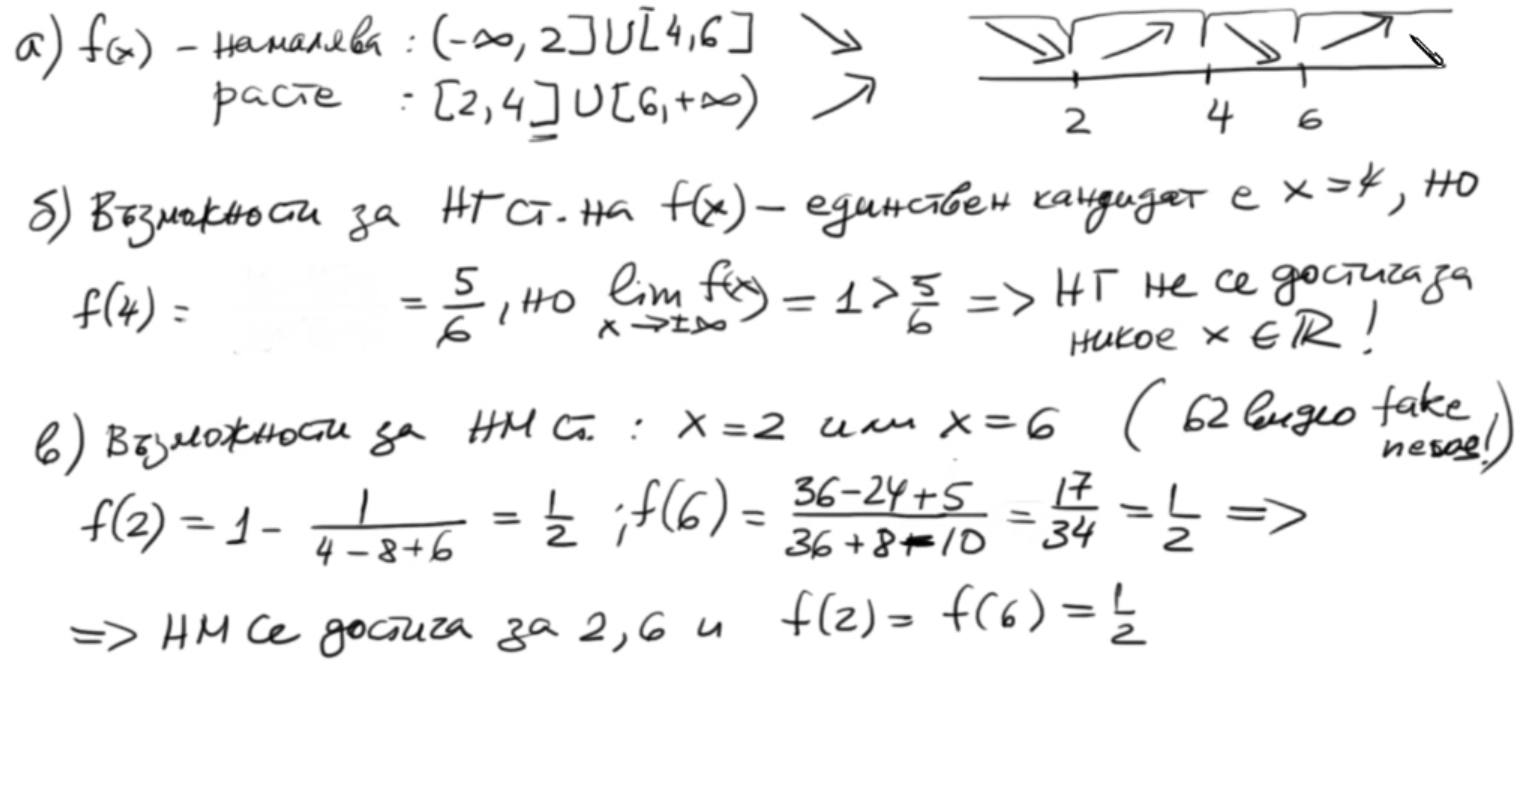 а) f(x) – намалява : (-∞, 2]∪[4,6]
расте : [2,4]∪[6,+∞)
2 4 6
б) Възможности за НГ ст. на f(x) – единствен кандидат е x = 4, но
f(4) = = 5/6, но lim x→±∞ f(x) = 1 > 5/6 => НГ не се достига за
никое x ∈ ℝ!
в) Възможности за НМ ст. : x = 2 или x = 6 (62 видио fake
f(2) = 1 - 1/(4-8+6) = 1/2 ; f(6) = (36-24+5)/(36+8-10) = 17/34 = 1/2 =>
=> НМ се достига за 2, 6 и f(2) = f(6) = 1/2